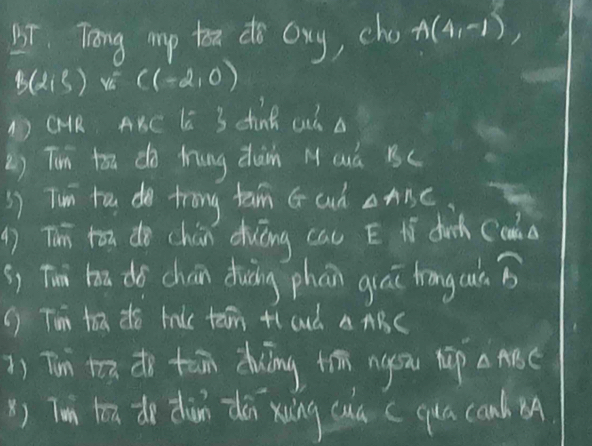 BT. Trong mp toạ độ Oxy, cho A(4,-1),
B(2,3) và C(-2,0)
1) CMR ABC là 3 đỉnh của Δ
2) Tìm toạ độ trung điểm M của BC
3) Tìm toạ độ trọng tâm G của ΔABC
4) Tìm toạ độ chân đường cao E từ đỉnh C của Δ
5) Tìm toạ độ chân đường phân giác trong của B̂
6) Tìm toạ độ trực tâm H của ΔABC
7) Tìm toạ độ tâm đường tròn ngoại tiếp ΔABC
8) Tìm toạ độ điểm đối xứng của C qua cạnh BA